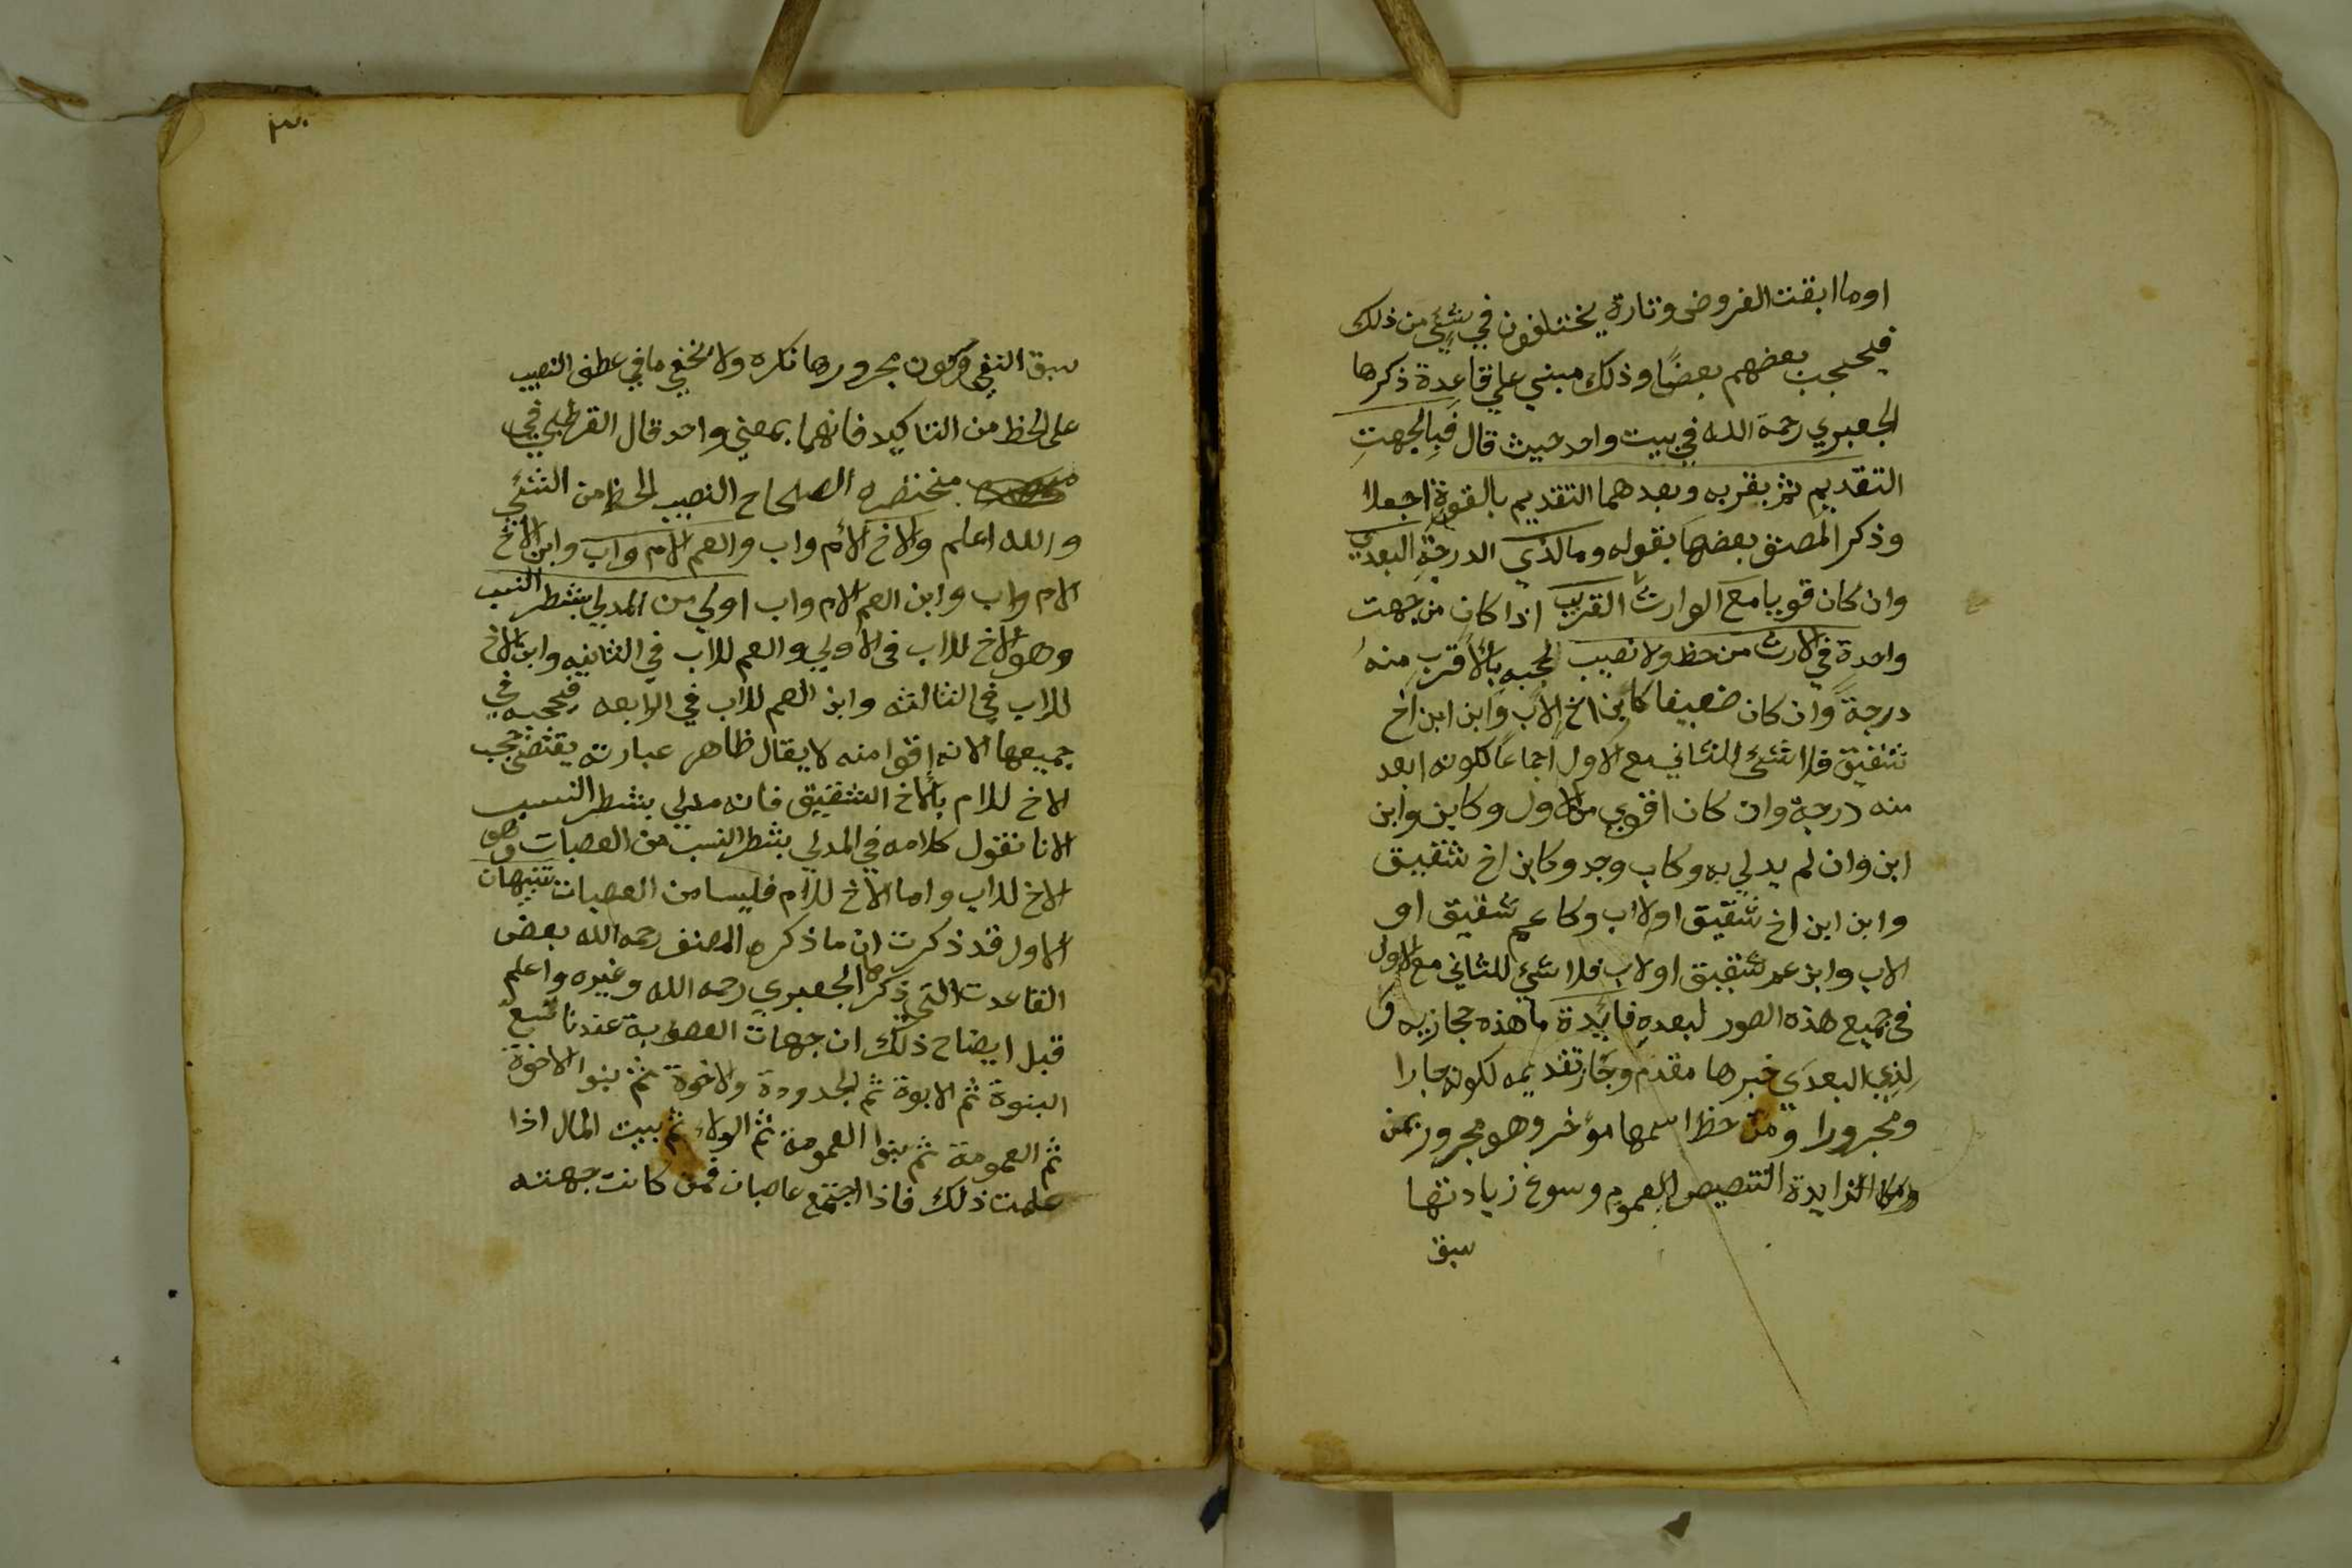 اوما ابقت الفروض وتارة يختلفون في شيئ من ذلك
فيحجب بعضهم بعضًا وذلك مبني علي قاعدة ذكرها
الجعبري رحمة الله في بيت واحد حيث قال فبالجهتِ
التقديم ثم بقربه وبعدهما التقديم بالقوة اجعلا
وذكر المصنف بعضها بقوله وما لذي الدرجةِ البعدي
وان كان قويا مع الوارث القريب اذا كان من جهت
واحدة في الارث من حظ ولا نصيب لحجبه بالأقرب منهُ
درجةً وان كان ضعيفا كابن اخ لاب وابن ابن اخ
شقيق فلا شئ للثاني مع الاول اجماعا لكونه ابعد
منه درجة وان كان اقوي من الاول وكابن وابن
ابن وان لم يدلي به وكاب وجد وكابن اخ شقيق
وابن ابن اخ شقيق او لاب وكاعم شقيق او
لاب وابن عم شقيق او لاب فلا شئ للثاني مع الاول
في جميع هذه الصور لبعده فائدة ما هذه حجازيه و
لِذِي البعدَي خبرها مقدم وجاز تقديمه لكونه جارا
ومجرورا و من حظ اسمها مؤخر وهو مجرور بمن
الزايدة التنصيص العموم وسوغ زيادتها
سبق
سبق النفي وكون مجرورها نكره ولا يخفي ما في عطف النصيب
على الحظ من التاكيد فانهما بمعني واحد قال القرطبي في
مختصر الصحاح النصيب الحظ من الشئي
والله اعلم والاخ لأم واب والعم لام واب وابن الاخ
لام واب وابن العم لام واب اولي من المدلي بشطر النسب
وهو الاخ للاب في الأولي والعم للاب في الثانيه وابن الاخ
للاب في الثالثه وابن العم للاب في الرابعه فيحجبه في
جميعها لانه اقوا منه لا يقال ظاهر عبارته يقتضي حجب
الاخ للام بالاخ الشقيق فانه مدلي بشطر النسب
لانا نقول كلامه في المدلي بشطر النسب من العصبات وهو
الاخ للاب واما الاخ للام فليسا من العصبات تنبيهان
الاول قد ذكرت ان ما ذكره المصنف رحمه الله بعض
القاعدت التي ذكرها الجعبري رحمه الله وغيره واعلم
قبل ايضاح ذلك ان جهات العصوبة عندنا تسع
البنوة ثم الابوة ثم الجدودة والاخوة ثم بنوا الاخوة
ثم العمومة ثم بنوا العمومة ثم الولاء ثم بيت المال اذا
علمت ذلك فاذا اجتمع عاصبان فمن كانت جهته